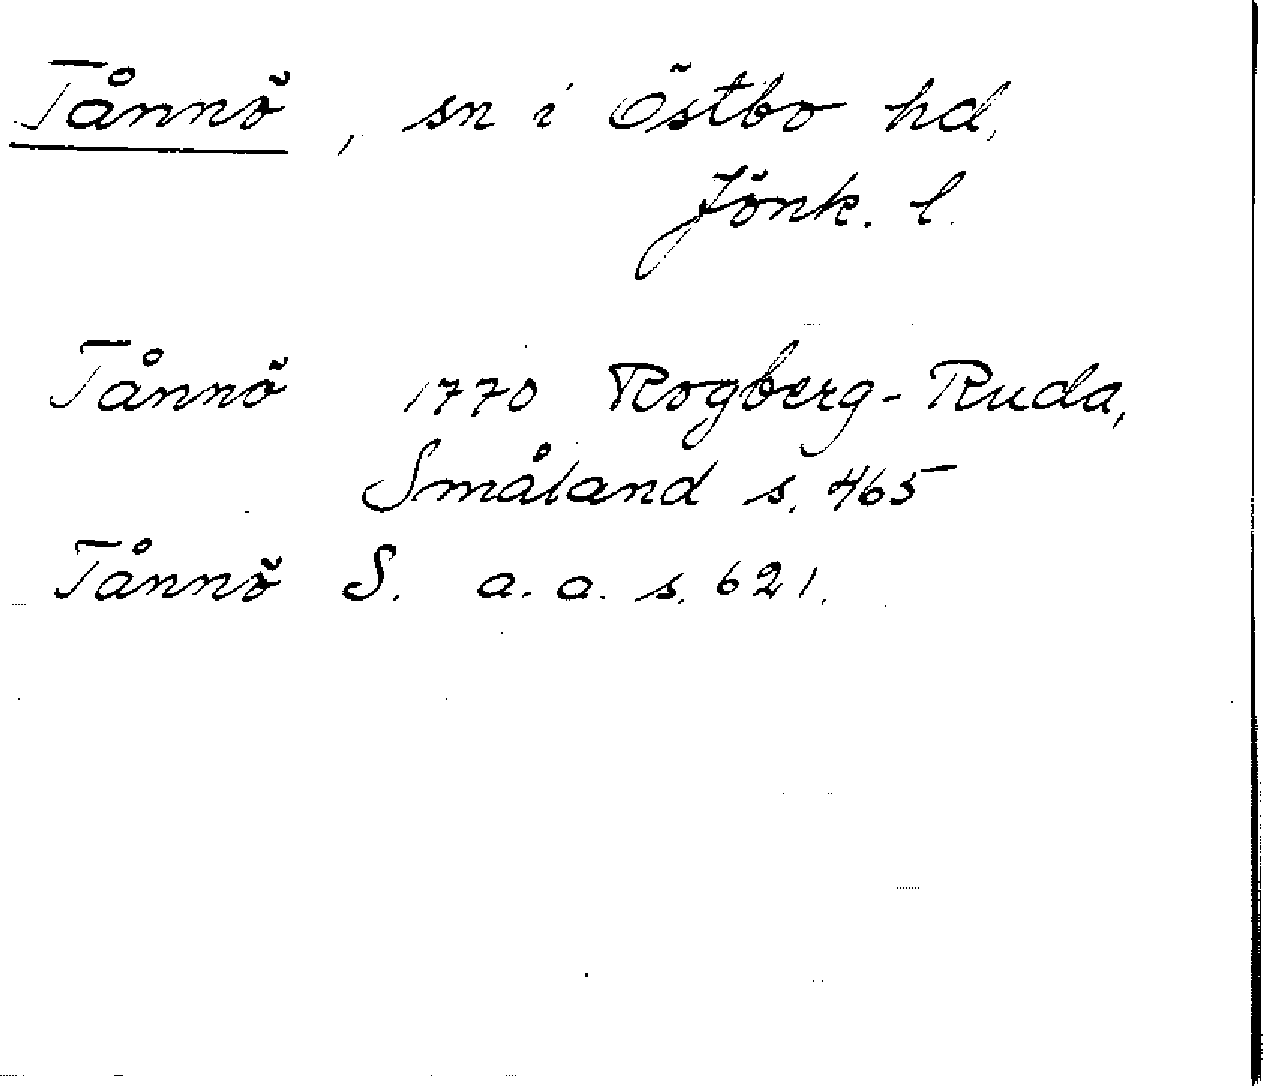 Tånnö, sn i Östbo hd,
Jönk. l.
Tånnö 1770 Rogberg-Ruda,
Småland s. 465
Tånnö S. a. a. s. 621.